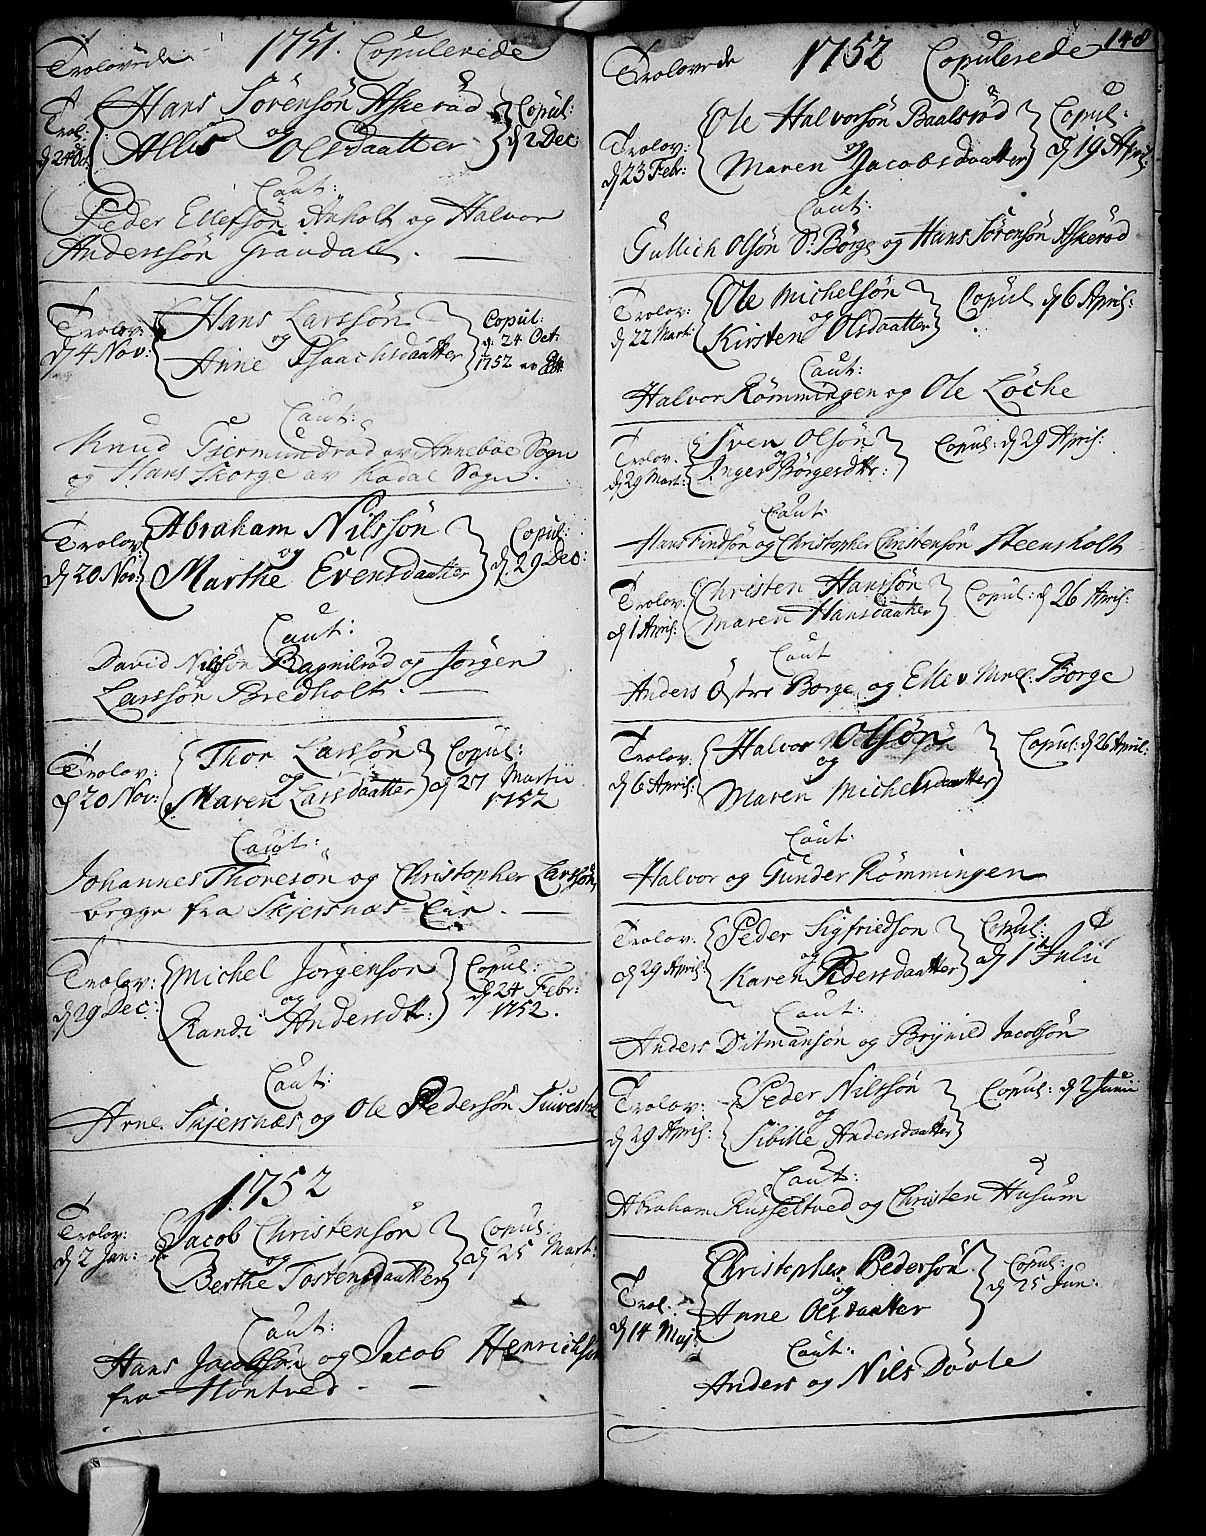 Trolovede 1751. Copulerede
Trol:
d 24 Oct:
Hans Sörensön Askeröd
og
Allis Olsdaatter
Copul:
d 2 Dec:
Caut:
Peder Ellefsön Anholt og Halvor
Anderssön Grandal.
Trolov:
d 4 Nov:
Hans Larssön
og
Anne Isaachsdaatter
Copul:
d: 24 Oct:
1752 av
Caut:
Knud Giermundröd av Anneboe Sogn
og Hans Skorge av Rodal Sogn.
Trolov:
d 20 Nov:
Abraham Nilssön
og
Marthe Evensdaatter
Copul:
d 29 Dec:
Caut:
David Nilssön Ragnilröd og Jörgen
Larssön Bredholt.
Trolov:
d 20 Nov:
Thor Larssön
og
Maren Larsdaatter
Copul:
d 27 Martii
1752
Caut:
Johannes Thoresön og Christopher Larssön,
begge fra Skjersnæs-Eie.
Trolov:
d 29 Dec:
Michel Jörgensön
og
Randi Andersdtr:
Copul:
d 24 Febr:
1752.
Caut:
Arne Skjersnæs og Ole Pedersön
1752
Trolov:
d 2 Jan:
Jacob Christensön
og
Berthe Tostensdaatter
Copul:
d 25 Mart:
Caut:
Hans Jacobsön og Jacob Henrichsön
fra Hontved.
148
Trolovede 1752 Copulerede
Trolov:
d 23 Febr:
Ole Halvorsön Baalsröd
og
Maren Jacobsdaatter
Copul:
d 19 April:
Caut:
Gullich Olsön S. Börge og Hans Sörensön Askeröd
Trolov:
d 22 Mart:
Ole Michelsön
og
Kirsten Olsdaatter
Copul d 6 April:
Caut:
Halvor Römmingen og Ole Löcke
Trolov.
d 29 Mart:
Sven Olsön
og
Inger Börgesdtr:
Copul: d 29 April:
Caut:
Hans Findsön og Christopher Christensön Steensholt
Trolov:
d 1 April:
Christen Hanssön
Maren Hansdaatter
Copul: d 26 April:
Caut
Anders Östre Borge og Ellev Mell: Borge
Trolov:
d 6 April:
Halvor Olsön
og
Maren Michelsdaatter
Copul: d 26 April:
Caut:
Halvor og Gunder Römmingen
Trolov:
d 29 April:
Peder Sigfriedsön
og
Karen Pedersdaatter
Copul:
d 1 Julii
Caut:
Anders Ditmansön og Brynild Jacobsön
Trolov:
d 29 April:
Peder Nilssön
og
Sibille Andersdaatter
Copul: d 2 Junii
Caut:
Abraham Russeltved og Christen Husum
Trol.
d 14 Maj:
Christopher Pedersön
og
Anne Olsdaatter
Copul:
d 25 Jun:
Caut:
Anders og Nils Dövle